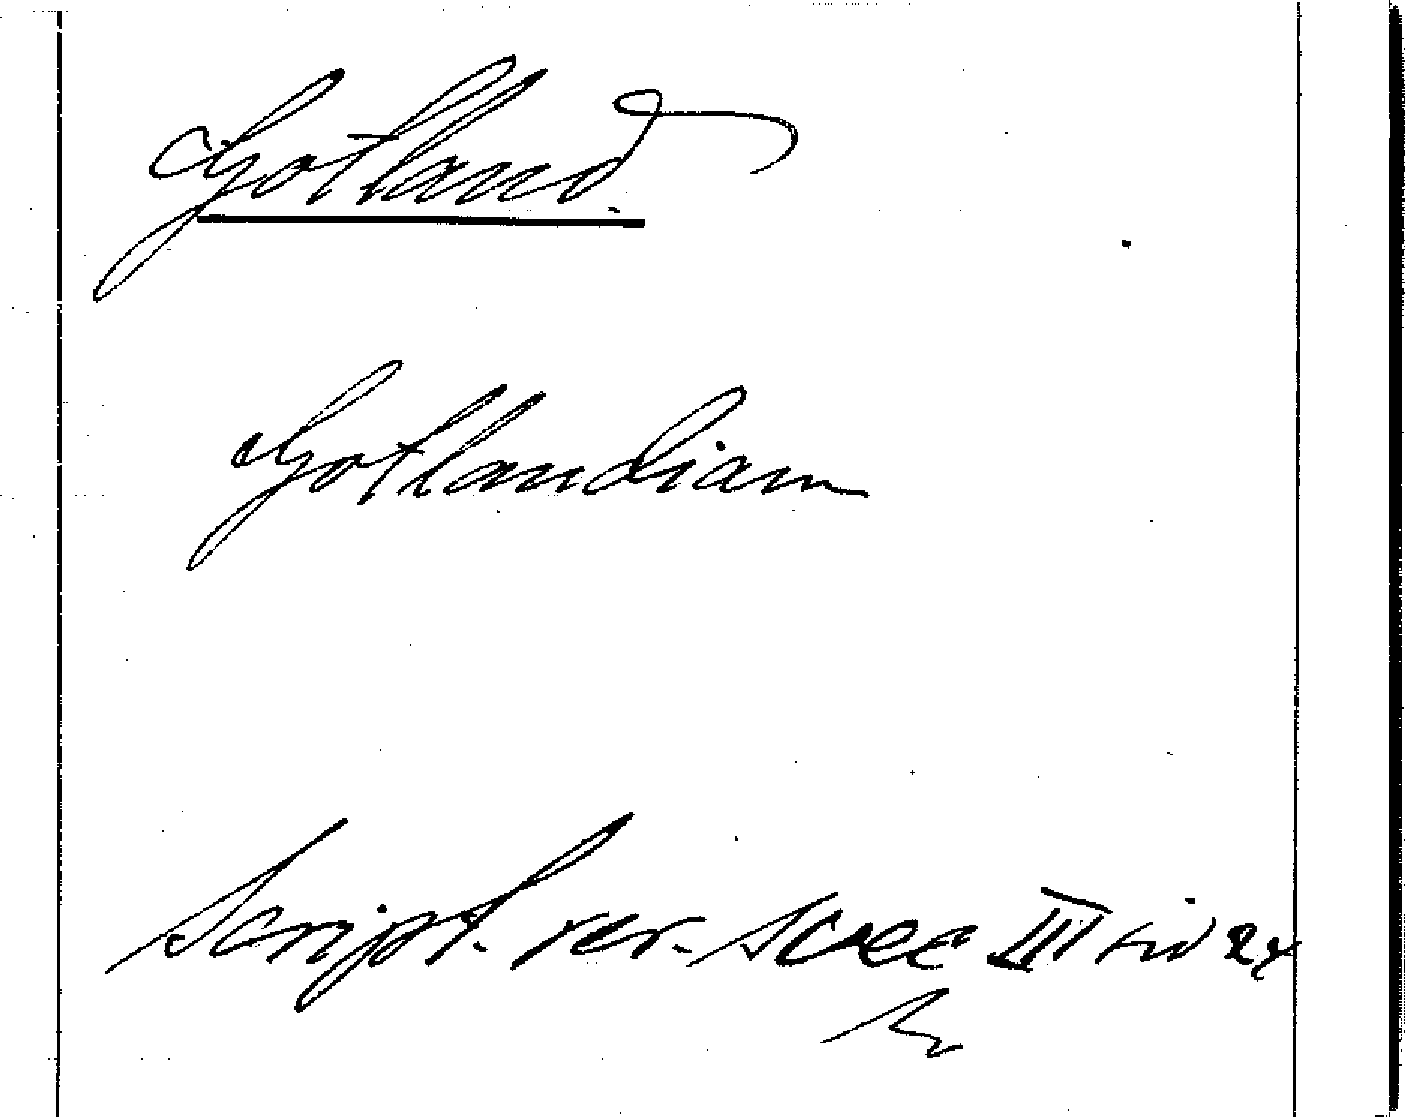 Gotland.
Gotlandiam
Script. rer. suec III